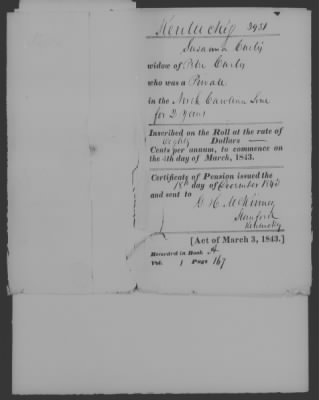 Kentucky 3951
Susanna Carby
widow of Peter Carby
who was a Private
in the North Carolina Line
for 2 years
Inscribed on the Roll at the rate of
Eighty Dollars
Cents per annum, to commence on
the 4th day of March, 1843.
Certificate of Pension issued the
18th day of December 1843
and sent to
G. H. McKinney
Stanford
Kentucky
[Act of March 3, 1843.]
Recorded in Book A
Vol. 1 Page 167